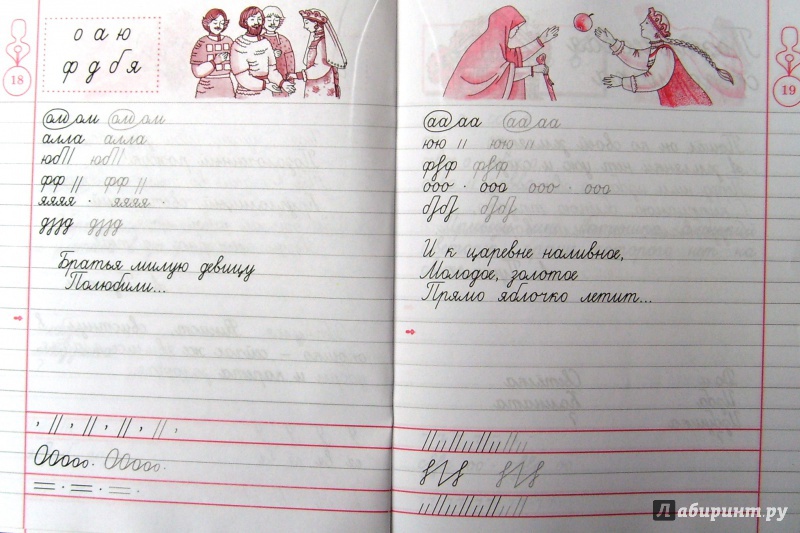 18
о а ю
ф д б я
олл ом олл ом
алла алла
юб юб
фф // фф //
яяяя · яяяя ·
Братья милую девицу
Полюбили...
Ооооо. Ооооо.
19
аа аа аа аа
юю // юю //
фф фф
ооо · ооо ооо · ооо
И к царевне наливное,
Молодое, золотое
Прямо яблочко летит...
Лабиринт.ру